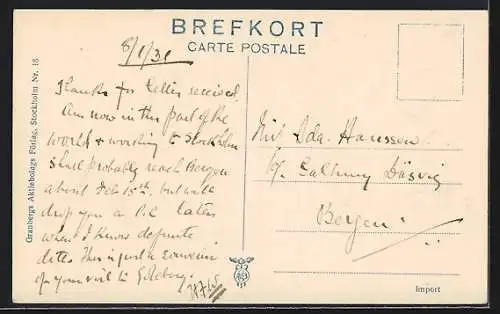 BREFKORT
CARTE POSTALE
Granbergs Aktiebolags Förlag, Stockholm Nr. 18
8/1/31
Thanks for letter received.
Am now in this part of the
world & working to Stockholm
shall probably reach Bergen
about Feb 15th. but will
drop you a P.C. later
when I know definite
date. This is just a souvenir
of your visit to Göteborg.
Ada Hanssen
Bergen
Import